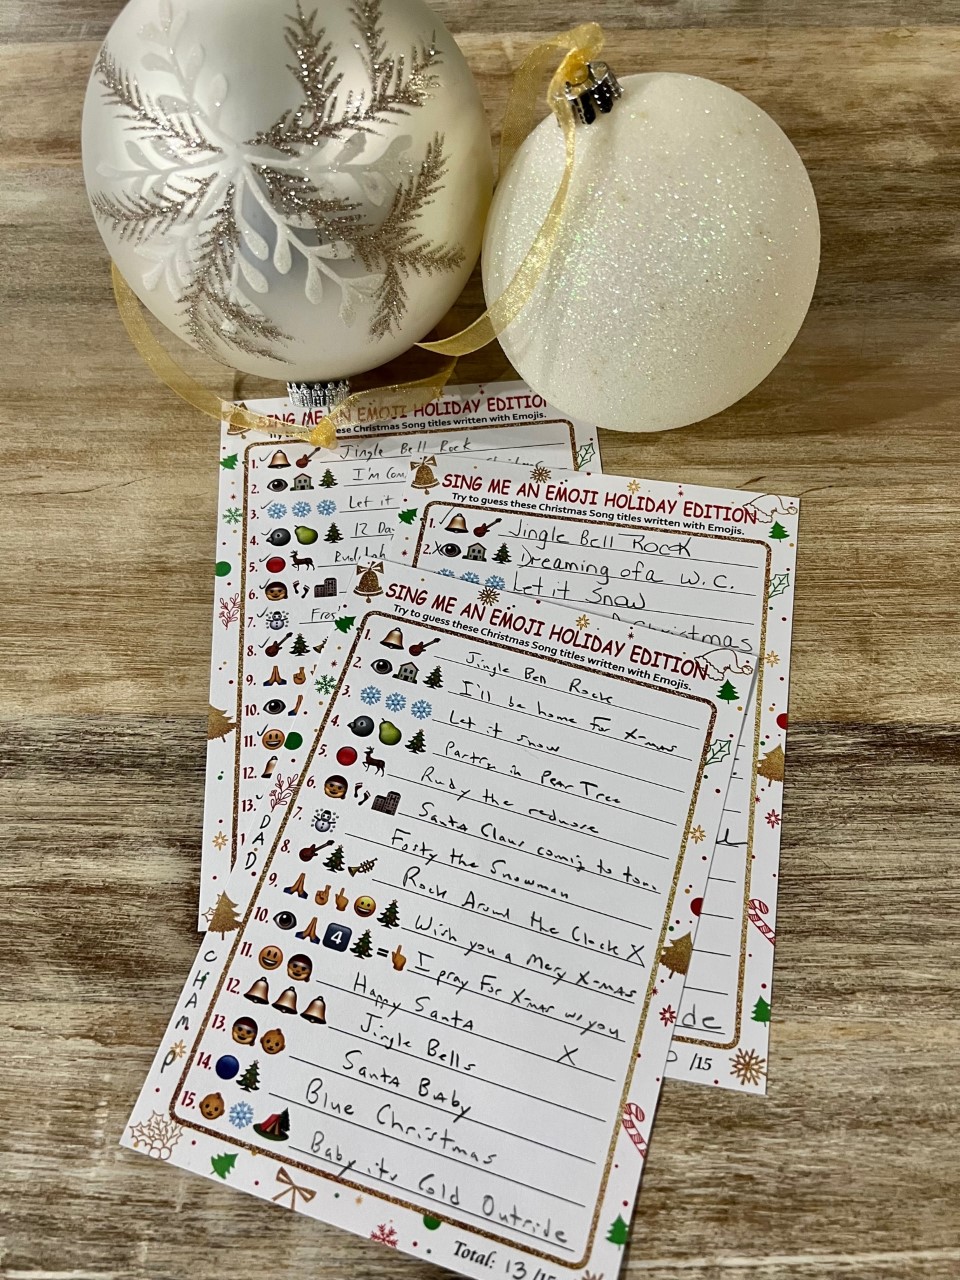 SING ME AN EMOJI HOLIDAY EDITION
Try to guess these Christmas Song titles written with Emojis.
1. Jingle Bell Rock
2. I'm
3. Let it
4. 12
5.
6.
7.
8.
9.
10.
11.
12.
13.
DAD
SING ME AN EMOJI HOLIDAY EDITION
Try to guess these Christmas Song titles written with Emojis.
1. Jingle Bell Rock
2. X Dreaming of a W.C.
Let it Snow
Christmas
de
/15
SING ME AN EMOJI HOLIDAY EDITION
Try to guess these Christmas Song titles written with Emojis.
1. Jingle Bell Rock
2. I'll be home For X-mas
3. Let it snow
4. Partry in Pear Tree
5. Rudy the rednose
6. Santa Claus coming to town
7. Fosty the Snowman
8. Rock Around the Clock X
9. Wish you a Mery X-mas
10. 4 = I pray For X-mas w/ you
11. Happy Santa X
12. Jingle Bells
13. Santa Baby
14. Blue Christmas
15. Baby its Cold Outside
CHAMP
Total: 13 /15